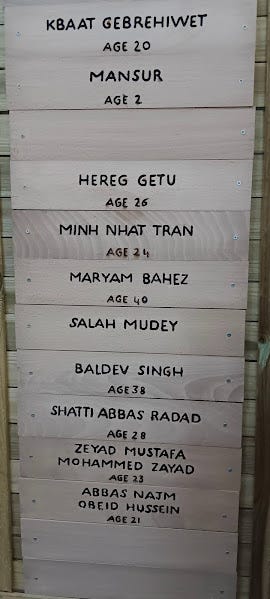 KBAAT GEBREHIWET
AGE 20
MANSUR
AGE 2
HEREG GETU
AGE 26
MINH NHAT TRAN
AGE 24
MARYAM BAHEZ
AGE 40
SALAH MUDEY
BALDEV SINGH
AGE 38
SHATTI ABBAS RADAD
AGE 28
ZEYAD MUSTAFA
MOHAMMED ZAYAD
AGE 23
ABBAS NAJM
OBEID HUSSEIN
AGE 21